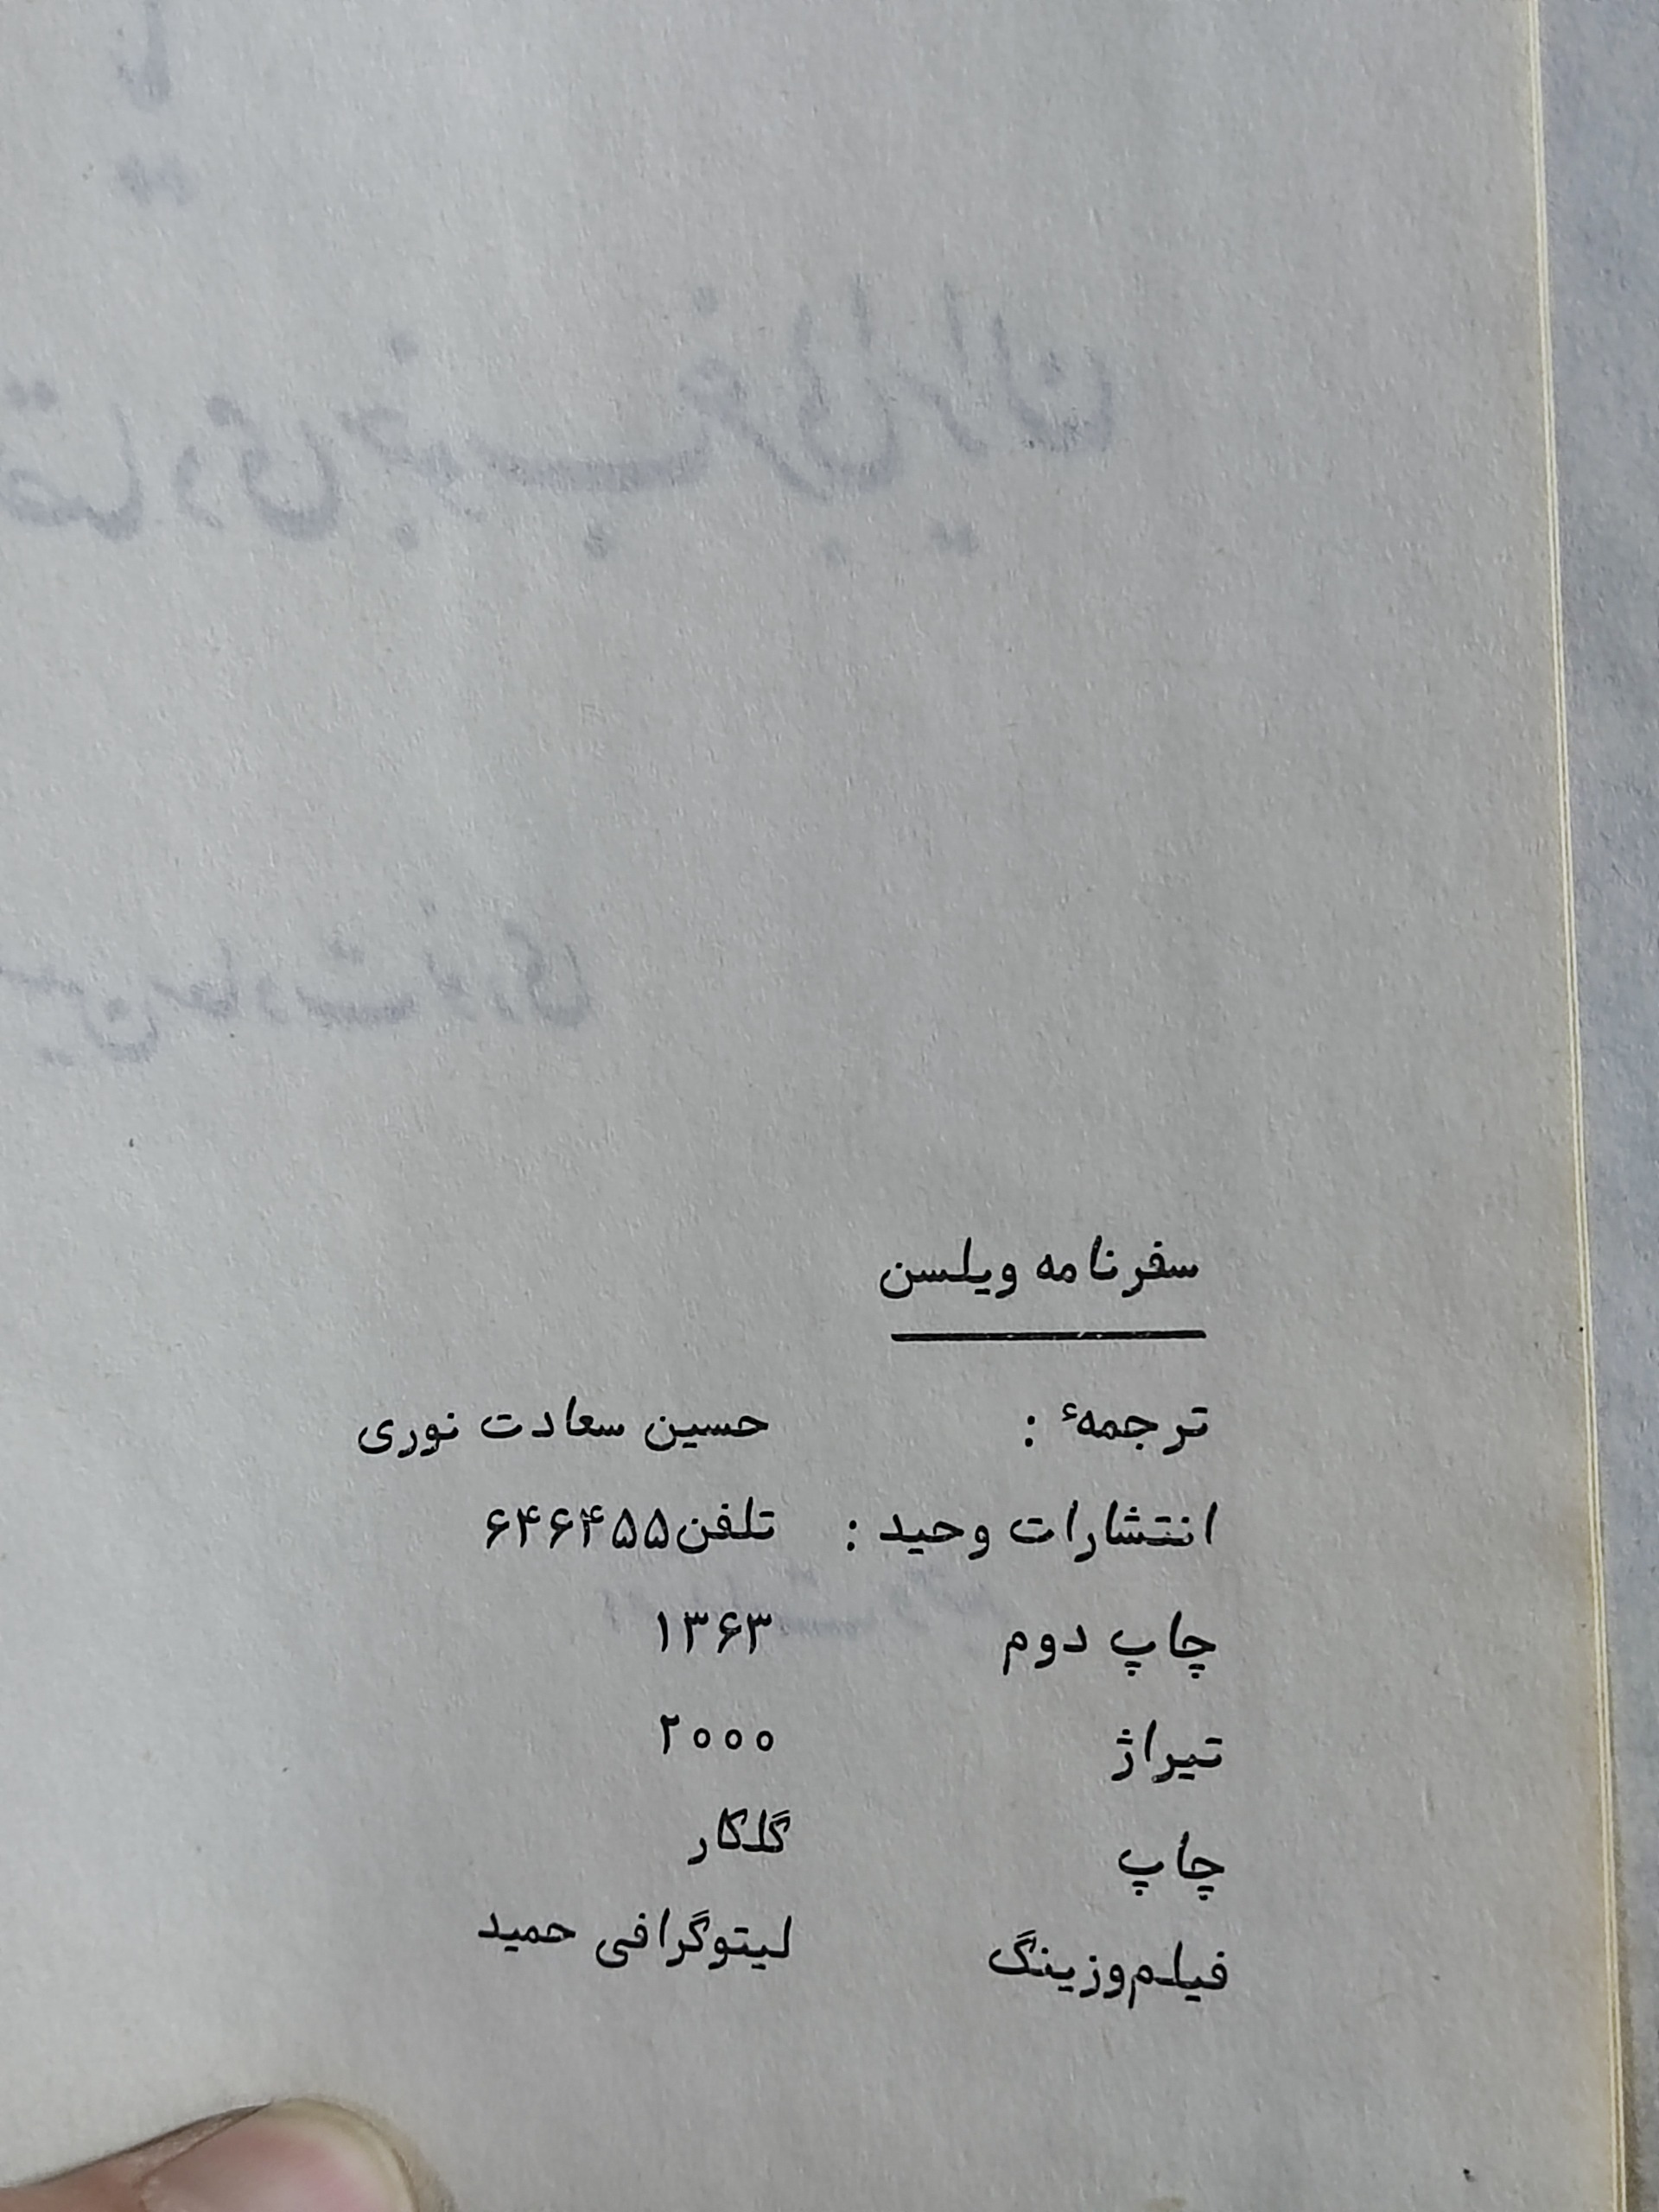 سفرنامه ویلسن
ترجمهٔ : حسین سعادت نوری
انتشارات وحید : تلفن ۶۴۶۴۵۵
چاپ دوم ۱۳۶۳
تیراژ ۲۰۰۰
چاپ گلکار
فیلم‌وزینگ لیتوگرافی حمید